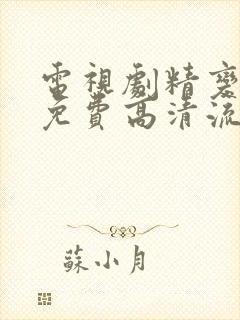 電視劇精變
免費高清流
蘇小月